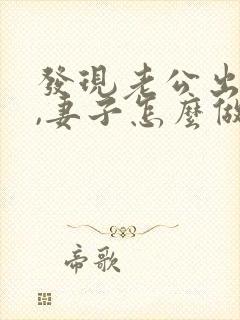 發現老公出
,妻子怎麼做
帝歌